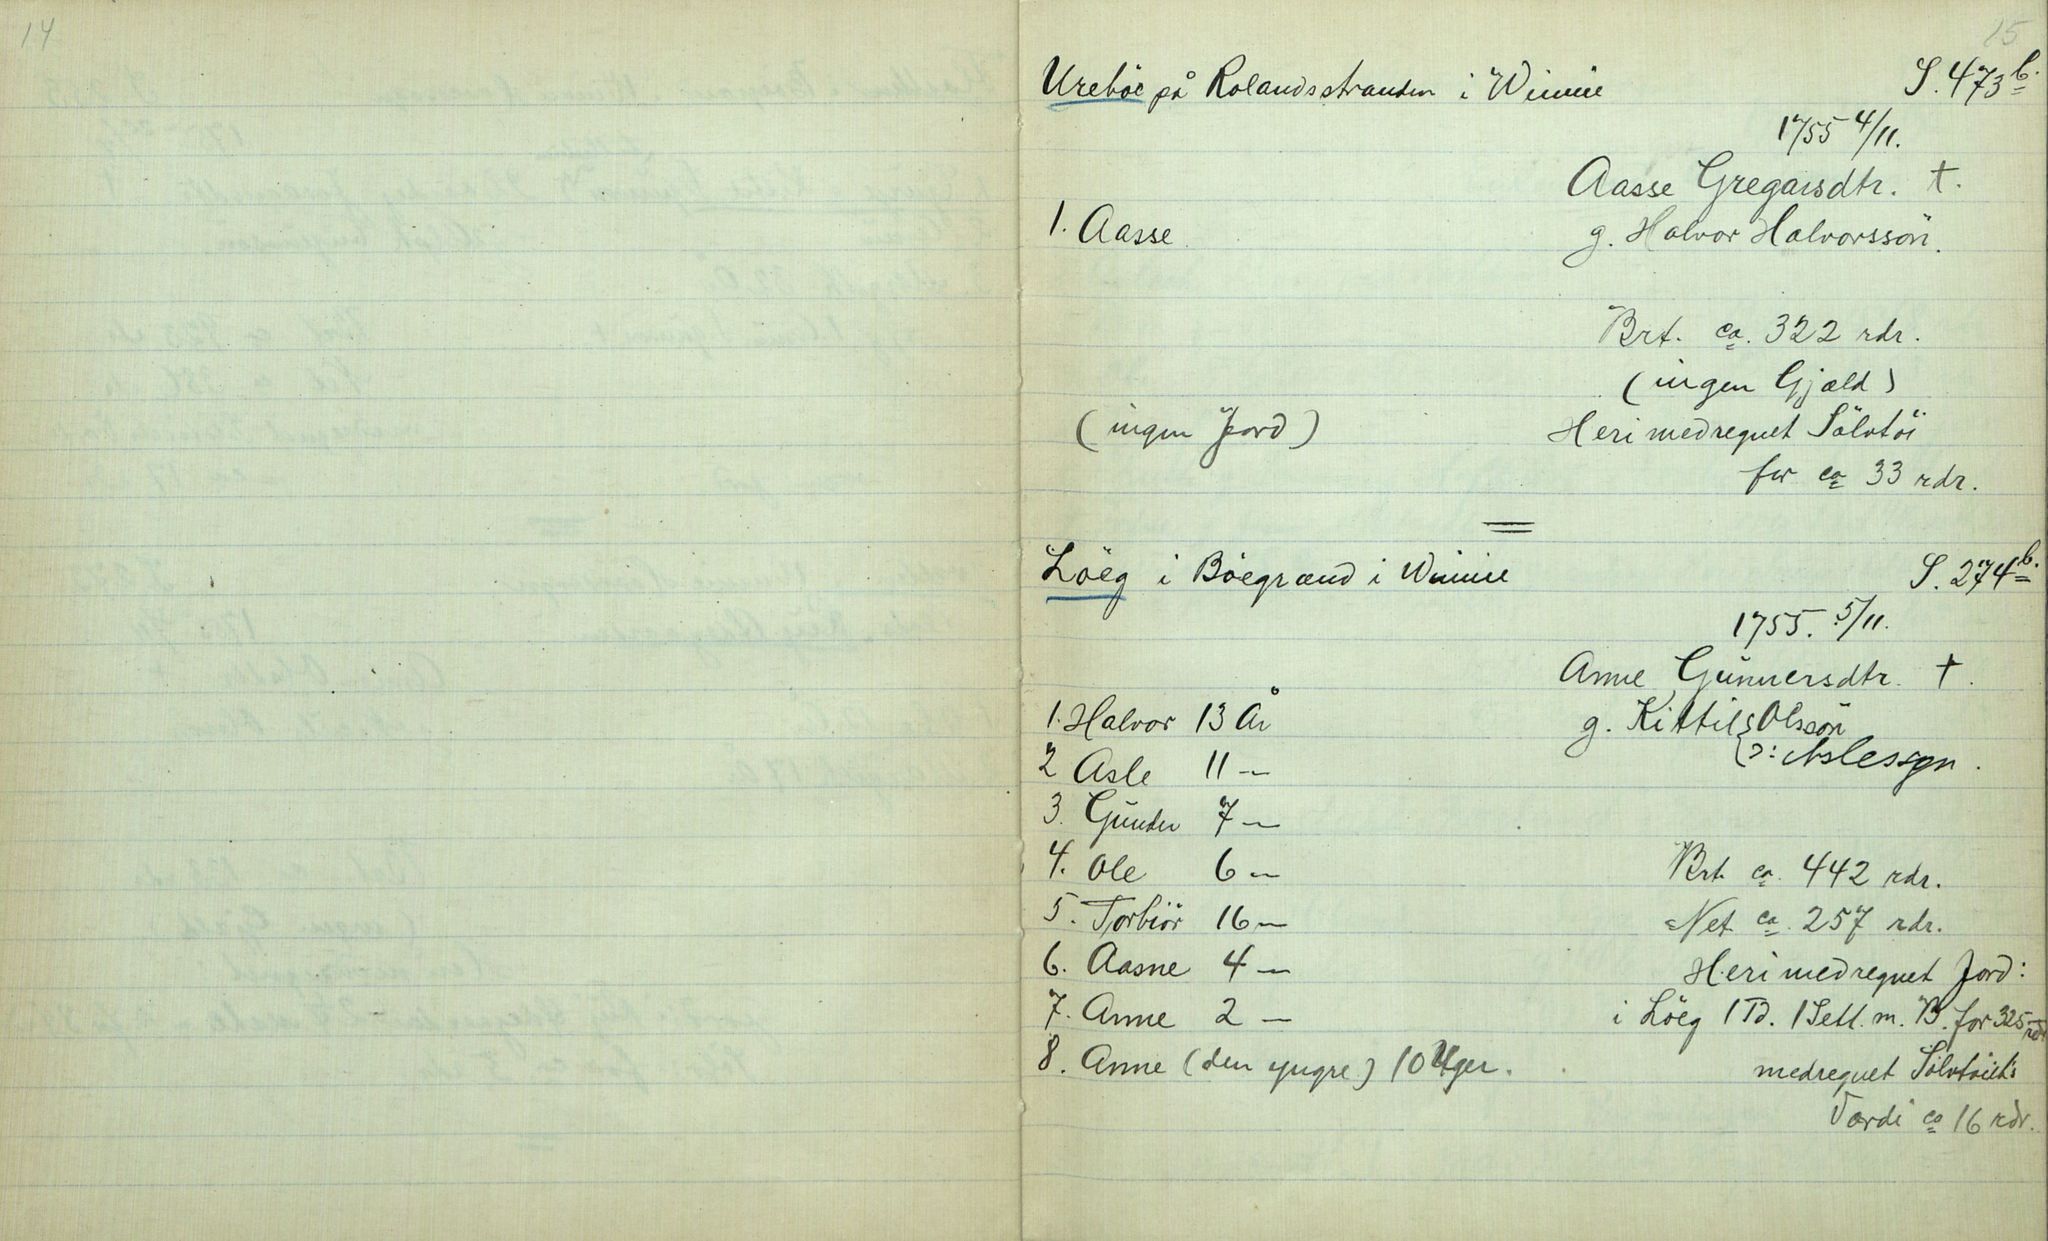 14
15
Ureböe på Rolandsstranden i Winnie S. 473 b.
1755 4/11.
Aasse Gregarsdtr. †.
1. Aasse g. Halvor Halvorssön.
Brt. ca. 322 rdr.
(ingen Gjæld)
(ingen Jord) Heri medregnet Sölvtöi
for ca 33 rdr.
Löeg i Böegrænd i Winnie S. 274 b.
1755. 5/11.
Anne Gunnersdtr. †.
1. Halvor 13 År g. Kittils Olssön
2 Asle 11 — (ɔ: Aslessøn.
3. Gunder 7 —
4. Ole 6 — Brt. ca. 442 rdr.
5. Torbiör 16 — Net. ca. 257 rdr.
6. Aasne 4 — Heri medregnet Jord:
7. Anne 2 — i Löeg 1 Td. 1 Sett. m. B. for 325 rdr
8. Anne (den yngre) 10 Uger. medregnet Sölvtöiets
Værdi ca 16 rdr.